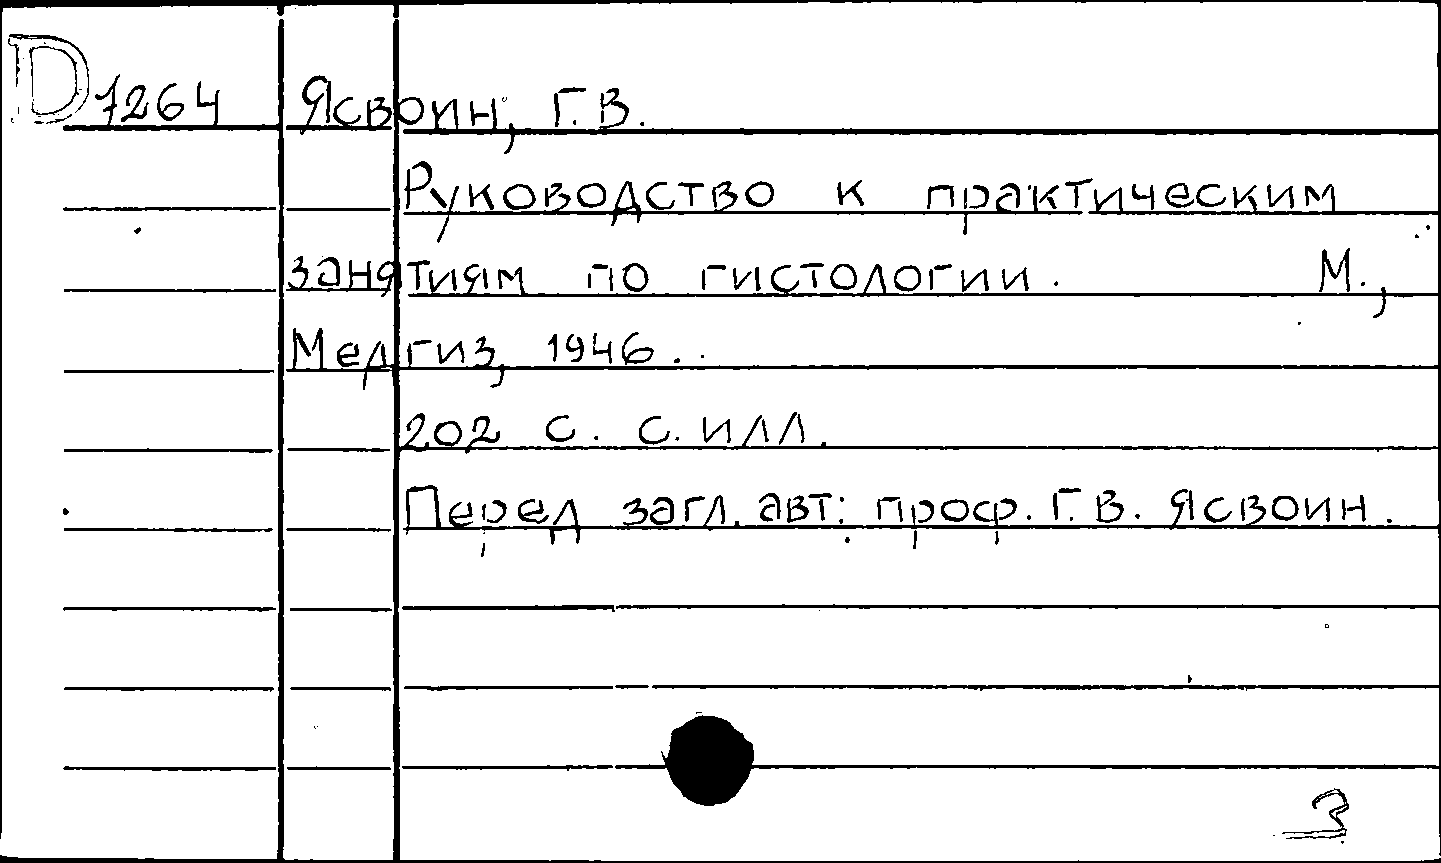 D 7264 Ясвоин, Г.В.
Руководство к практическим
занятиям по гистологии. М.,
Медгиз, 1946.
202 с. с. илл.
Перед загл. авт: проф. Г.В. Ясвоин.
3